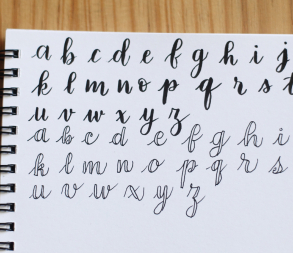 a b c d e f g h i j
k l m n o p q r s t
u v w x y z
a b c d e f g h i
k l m n o p q r s
u v w x y z